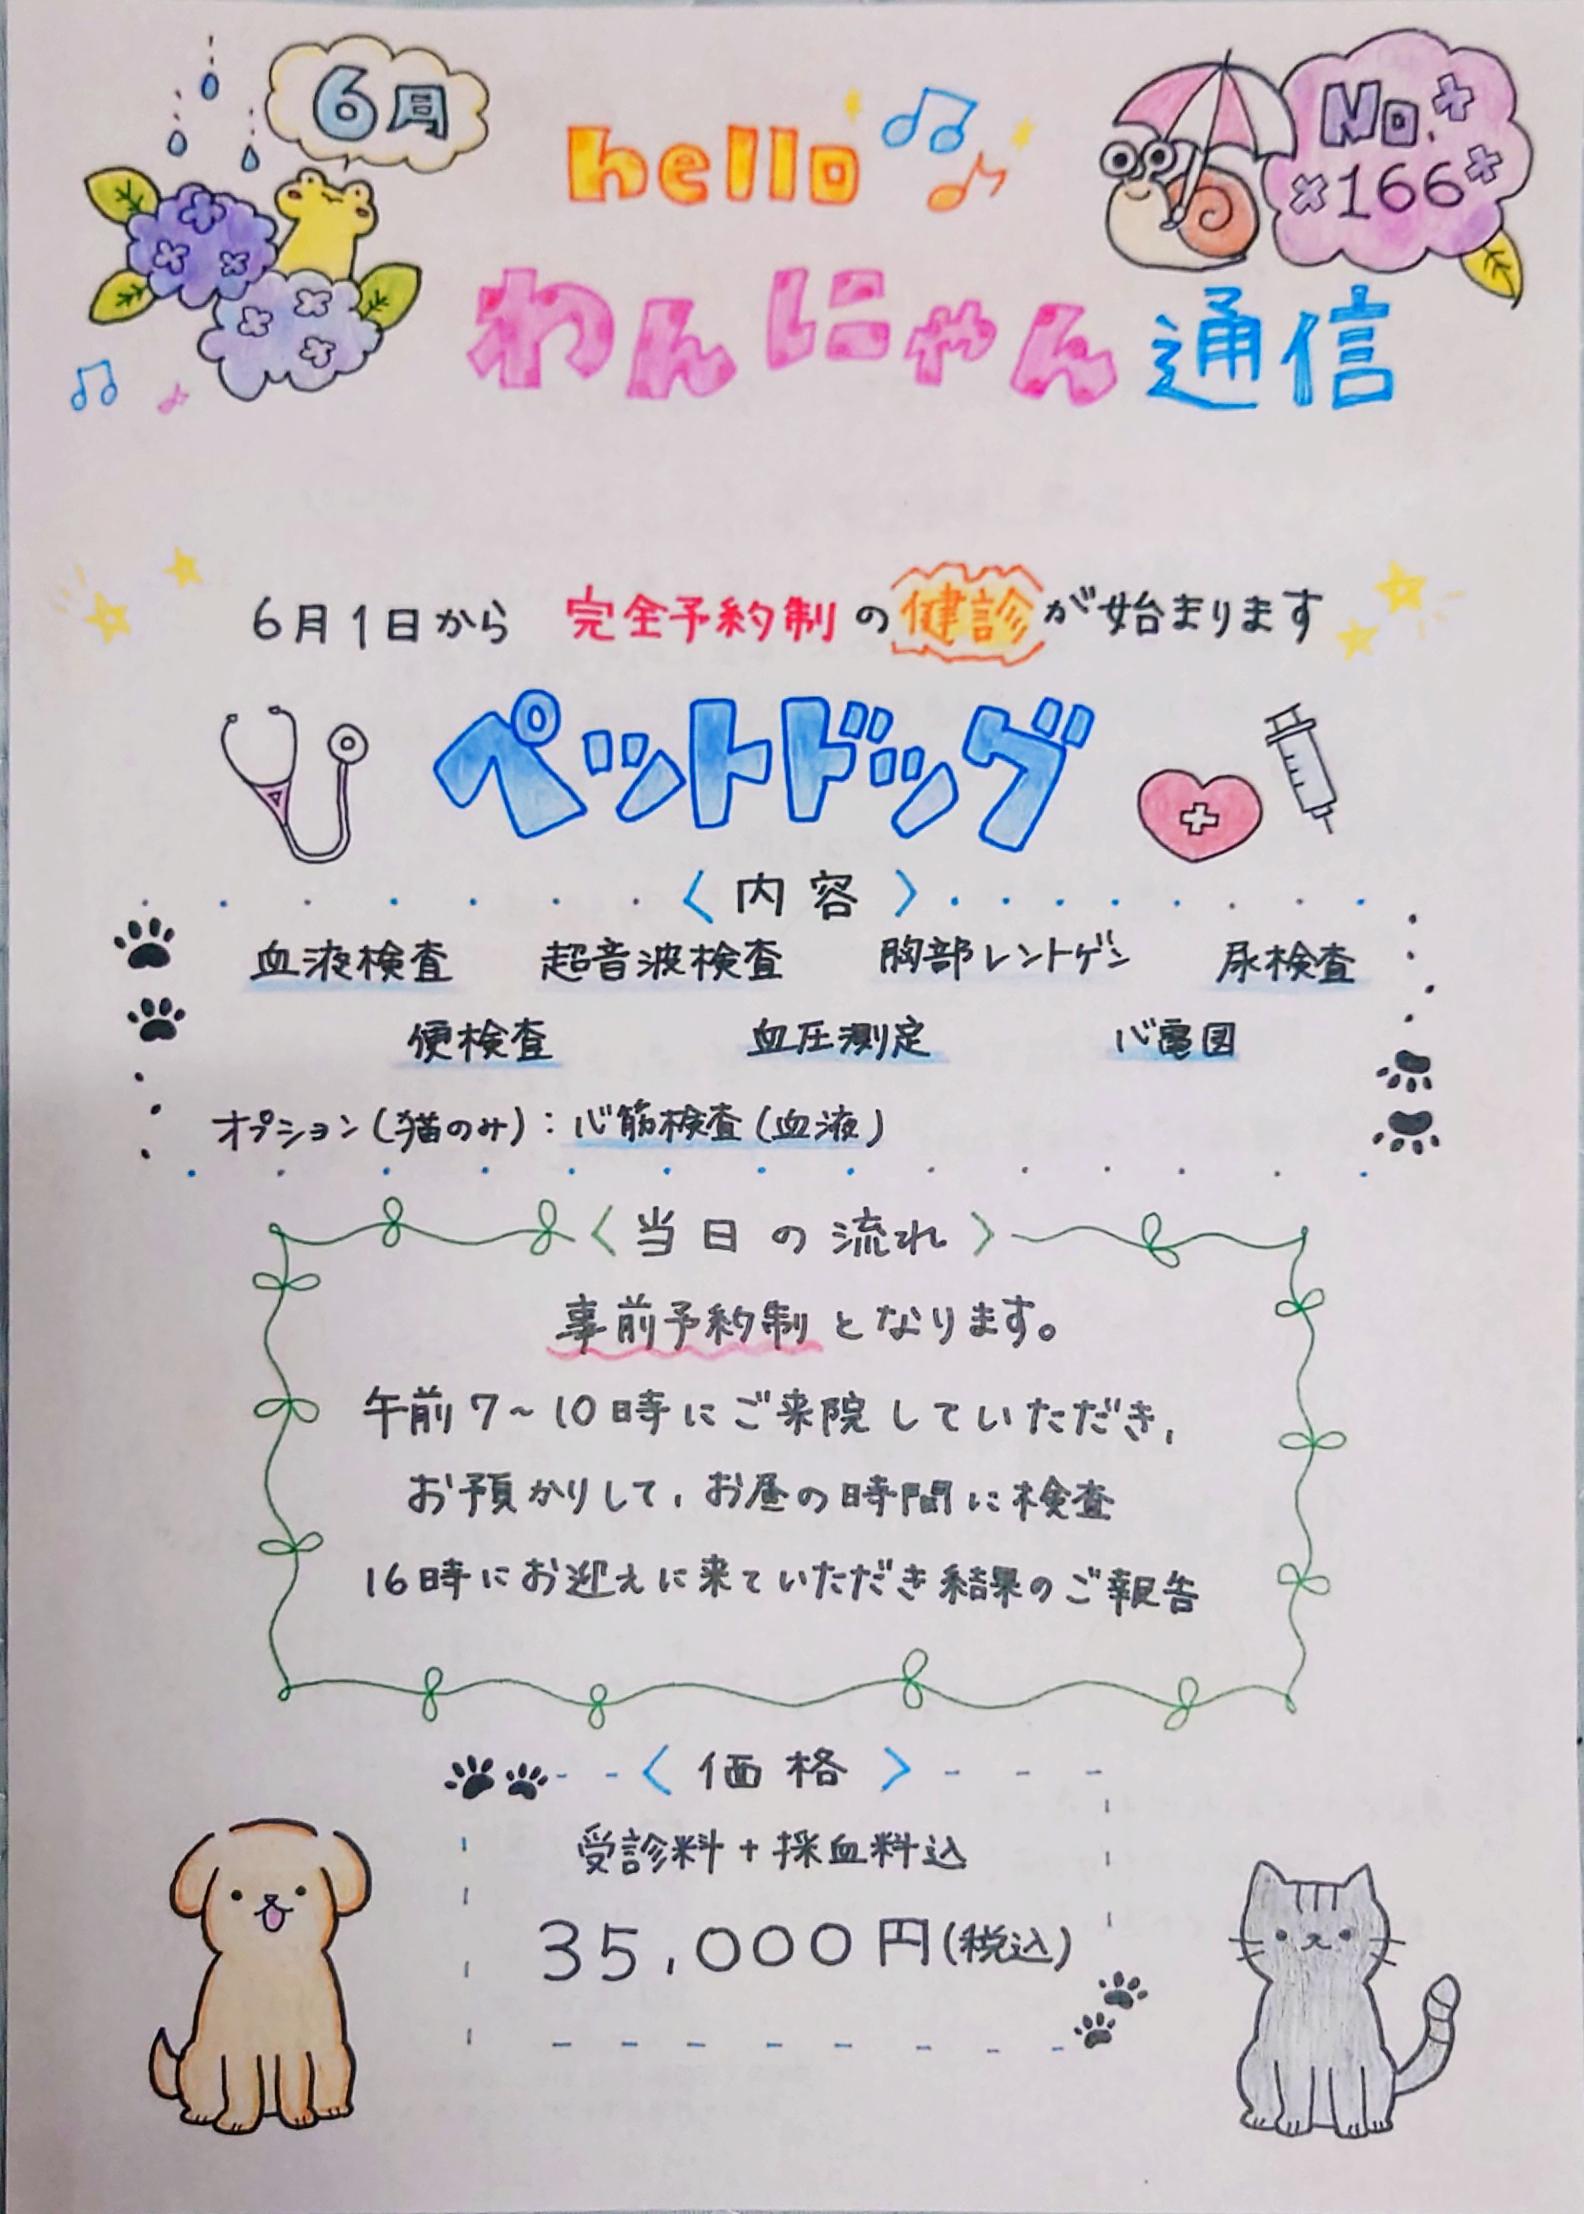 6月
hello
No.
166
わんにゃん通信
6月1日から 完全予約制の健診が始まります
ペットドッグ
〈内容〉
血液検査 超音波検査 胸部レントゲン 尿検査
便検査 血圧測定 心電図
オプション(猫のみ):心筋検査(血液)
〈当日の流れ〉
事前予約制となります。
午前7~10時にご来院していただき、
お預かりして、お昼の時間に検査
16時にお迎えに来ていただき結果のご報告
〈価格〉
受診料+採血料込
35,000円(税込)